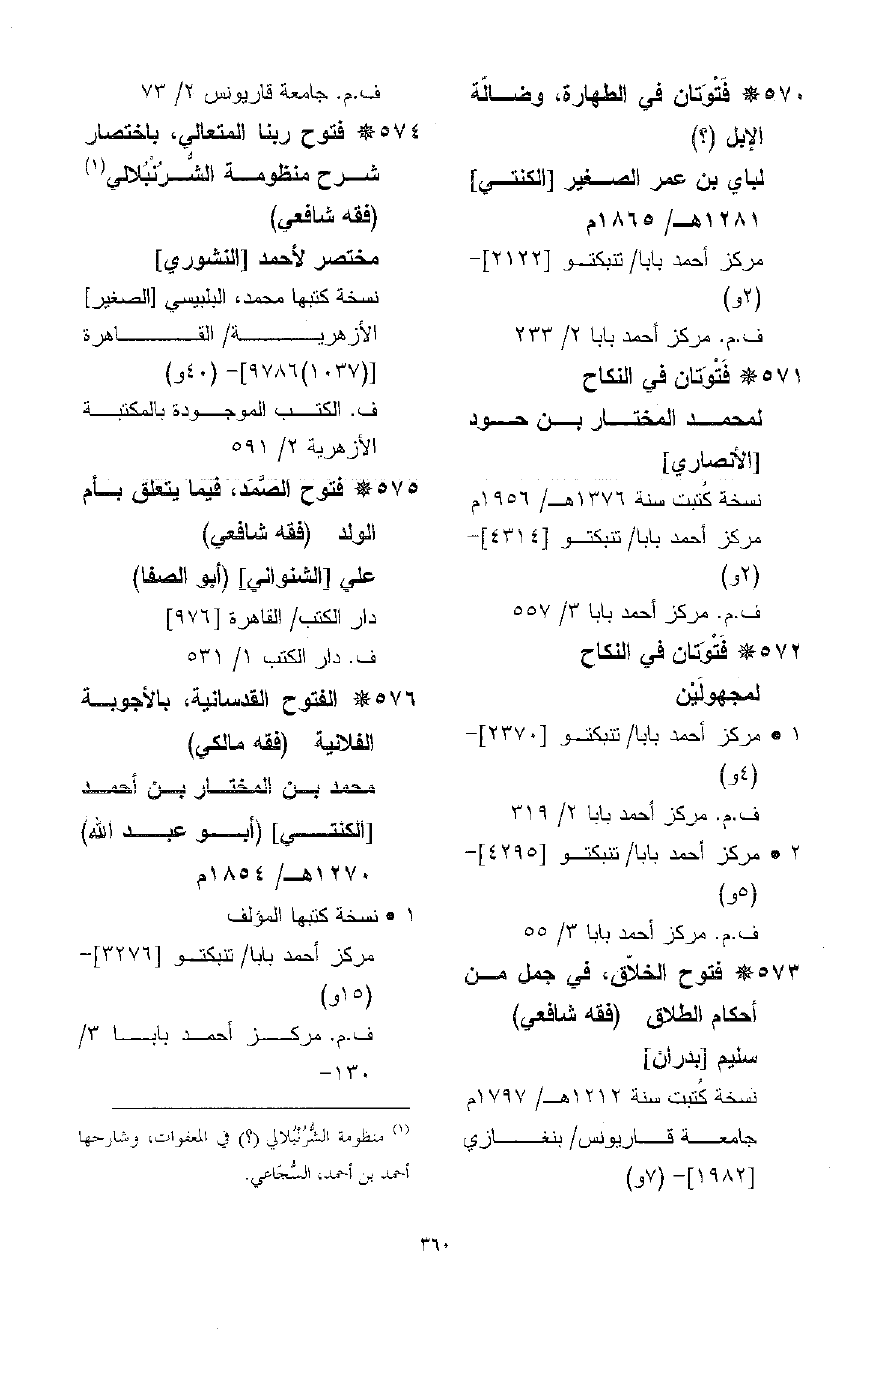 ٥٧٠* فَتْوَتان في الطهارة، وضالّة
الإبل (؟)
لباي بن عمر الصغير [الكنتي]
١٢٨١هـ/ ١٨٦٥م
مركز أحمد بابا/ تنبكتو [٢١٢٢]-
(٢و)
ف.م. مركز أحمد بابا ٢/ ٢٣٣
٥٧١* فَتْوَتان في النكاح
لمحمد المختار بن حود
[الأنصاري]
نسخة كُتبت سنة ١٣٧٦هـ/ ١٩٥٦م
مركز أحمد بابا/ تنبكتو [٤٣١٤]-
(٢و)
ف.م. مركز أحمد بابا ٣/ ٥٥٧
٥٧٢* فَتْوَتان في النكاح
لمجهولَيْن
١ • مركز أحمد بابا/ تنبكتو [٢٣٧٠]-
(٤و)
ف.م. مركز أحمد بابا ٢/ ٣١٩
٢ • مركز أحمد بابا/ تنبكتو [٤٢٩٥]-
(٥و)
ف.م. مركز أحمد بابا ٣/ ٥٥
٥٧٣* فتوح الخلاّق، في جمل من
أحكام الطلاق (فقه شافعي)
سليم [بدران]
نسخة كُتبت سنة ١٢١٢هـ/ ١٧٩٧م
جامعة قاريونس/ بنغازي
[١٩٨٢]- (٧و)
ف.م. جامعة قاريونس ٢/ ٧٣
٥٧٤* فتوح ربنا المتعالي، باختصار
شرح منظومة الشُّرُنْبُلالي(١)
(فقه شافعي)
مختصر لأحمد [النشوري]
نسخة كتبها محمد، البلبيسي [الصغير]
الأزهرية/ القاهرة
[(١٠٣٧)٩٧٨٦]- (٤٠و)
ف. الكتب الموجودة بالمكتبة
الأزهرية ٢/ ٥٩١
٥٧٥* فتوح الصَّمَد، فيما يتعلق بأم
الولد (فقه شافعي)
علي [الشنواني] (أبو الصفا)
دار الكتب/ القاهرة [٩٧٦]
ف. دار الكتب ١/ ٥٣١
٥٧٦* الفتوح القدسانية، بالأجوبة
الفلانية (فقه مالكي)
محمد بن المختار بن أحمد
[الكنتي] (أبو عبد الله)
١٢٧٠هـ/ ١٨٥٤م
١ • نسخة كتبها المؤلف
مركز أحمد بابا/ تنبكتو [٣٢٧٦]-
(١٥و)
ف.م. مركز أحمد بابا ٣/
١٣٠-
(١) منظومة الشُّرُنْبُلالي (؟) في المعفوات، وشارحها
أحمد بن أحمد، السُّجَاعي.
٣٦٠